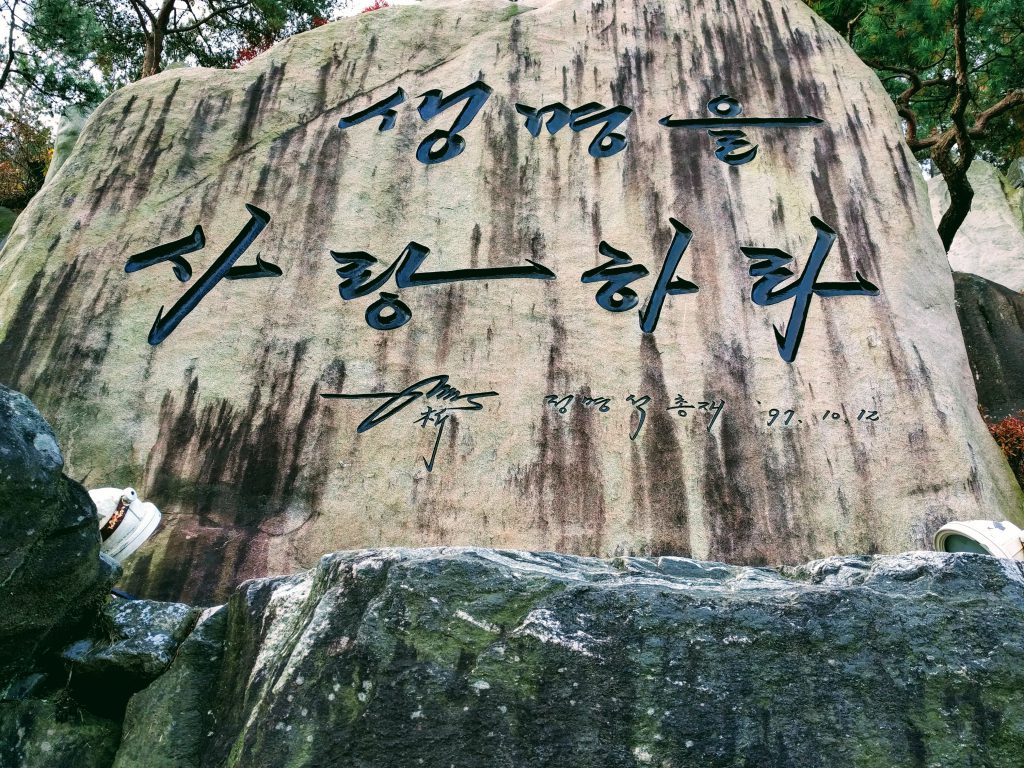 생명을
사랑하라
정명석 총재 '97. 10. 12